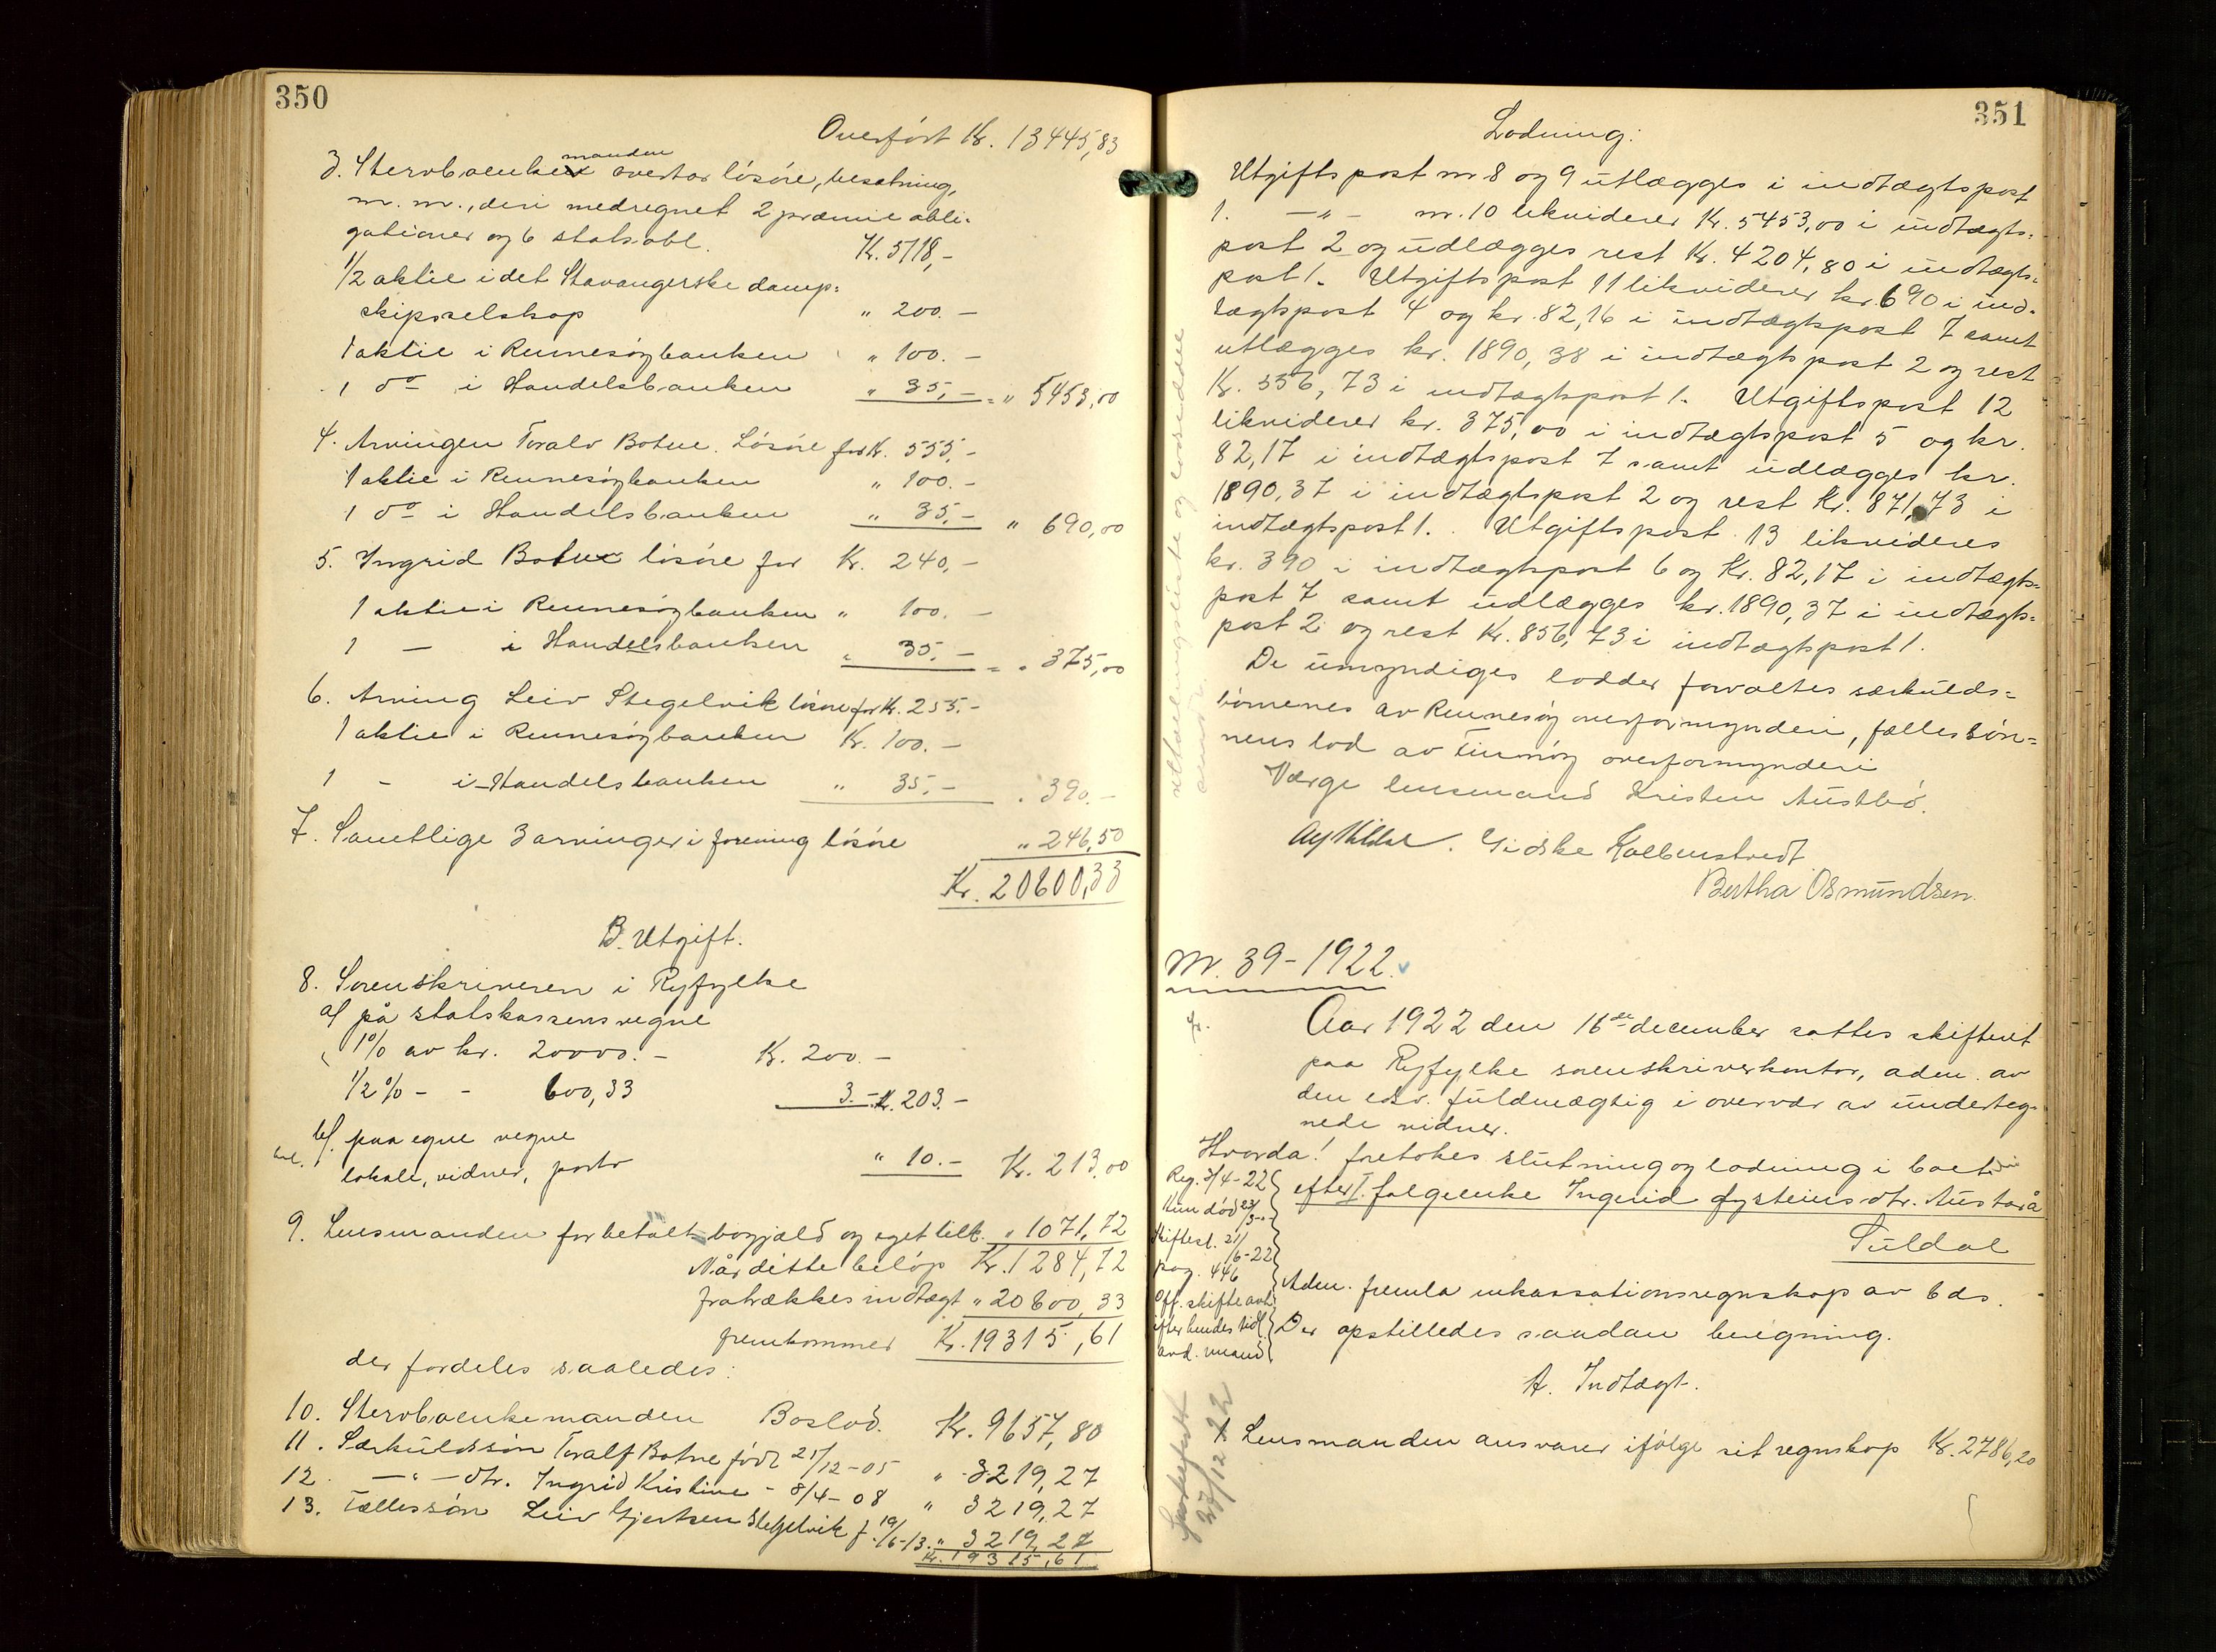 350
Overført Kr. 13445,83
3. Stervboenkemanden overtar løsøre, besætning,
m. m., deri medregnet 2 præmie obli-
gationer og 6 statsobl. Kr. 5118,-
1/2 aktie i det Stavangerske damp-
skipsselskap " 200.-
1 aktie i Rennesøybanken " 100.-
1 do i Handelsbanken " 35,- = " 5453,00
4. Arvingen Toralv Botne. Løsøre for Kr. 555,-
1 aktie i Rennesøybanken " 100.-
1 do i Handelsbanken " 35,- " 690,00
5. Ingrid Botne løsøre for Kr. 240,-
1 aktie i Rennesøybanken " 100.-
1 — i Handelsbanken " 35,- = " 375,00
6. Arving Leiv Stegelvik løsøre for Kr. 255.-
1 aktie i Rennesøybanken Kr. 100.-
1 - i Handelsbanken " 35,- " 390.-
7. Samtlige 3 arvinger i forening løsøre " 246,50
Kr. 20600,33
B. Utgift.
8. Sorenskriveren i Ryfylke
a/ på statskassens vegne
1% av kr. 20000.- Kr. 200.-
1/2% - - 600,33 3.- Kr. 203.-
b/. paa egne vegne
lokale, vidner, porto " 10.- Kr. 213,00
9. Lensmanden for betalt bogjæld og eget tilk. " 1071,72
Når dette beløp Kr. 1284,72
fratrækkes indtægt " 20600,33
fremkommer Kr. 19315,61
der fordeles saaledes:
10. Stervboenkemanden Boslod. Kr. 9657,80
11. Særkuldssøn Toralf Botne født 21/12-05 " 3219,27
12. —"— dtr. Ingrid Kristine - 8/4-08 " 3219,27
13. Fællessøn Leiv Gjertsen Stegelvik f. 19/6-13. " 3219,27
Kr. 19315,61
351
Lodning:
Utgiftspost nr 8 og 9 utlægges i indtægtspost
1. —"— nr. 10 likviderer Kr. 5453,00 i indtægts-
post 2 og udlægges rest Kr. 4204,80 i indtægts-
post 1. Utgiftspost 11 likviderer kr. 690 i ind-
tægtspost 4 og kr. 82,16 i indtægtspost 7 samt
utlægges kr. 1890,38 i indtægtspost 2 og rest
Kr. 556,73 i indtægtspost 1. Utgiftspost 12
likviderer kr. 375,00 i indtægtspost 5 og kr.
82,17 i indtægtspost 7 samt udlægges kr.
1890,37 i indtægtspost 2 og rest Kr. 871,73 i
indtægtspost 1. Utgiftspost 13 likvideres
kr. 390 i indtægtspost 6 og Kr. 82,17 i indtægts-
post 7 samt udlægges kr. 1890,37 i indtægts-
post 2 og rest Kr. 856,73 i indtægtspost 1.
De umyndiges lodder forvaltes særkulds-
børnenes av Rennesøy overformynderi, fællesbør-
nens lod av Finnøy overformynderi
Værge lensmand Kristen Austbø.
Gidske Kolbenstvedt
Bertha Osmundsen.
Nr. 39-1922.
Aar 1922 den 16de december sattes skifteret
paa Ryfylke sorenskriverkontor, adm. av
den edsv. fuldmægtig i overvær av underteg-
nede vidner.
Hvorda! foretokes slutning og lodning i boet
efter I. folgeenke Ingerid Øysteinsdtr. Austarå
Suldal
Reg. 3/4-22
Hun død 23/3
Skiftesl. 21/6-22
pag. 446
Off. skifte avh.
efter hendes tidl.
avd. mand
Adm. fremla inkassationsregnskap av 6 ds.
Der opstilledes saadan beregning.
A. Indtægt.
1 Lensmanden ansvarer ifølge sit regnskap Kr. 2786,20
27/12 22